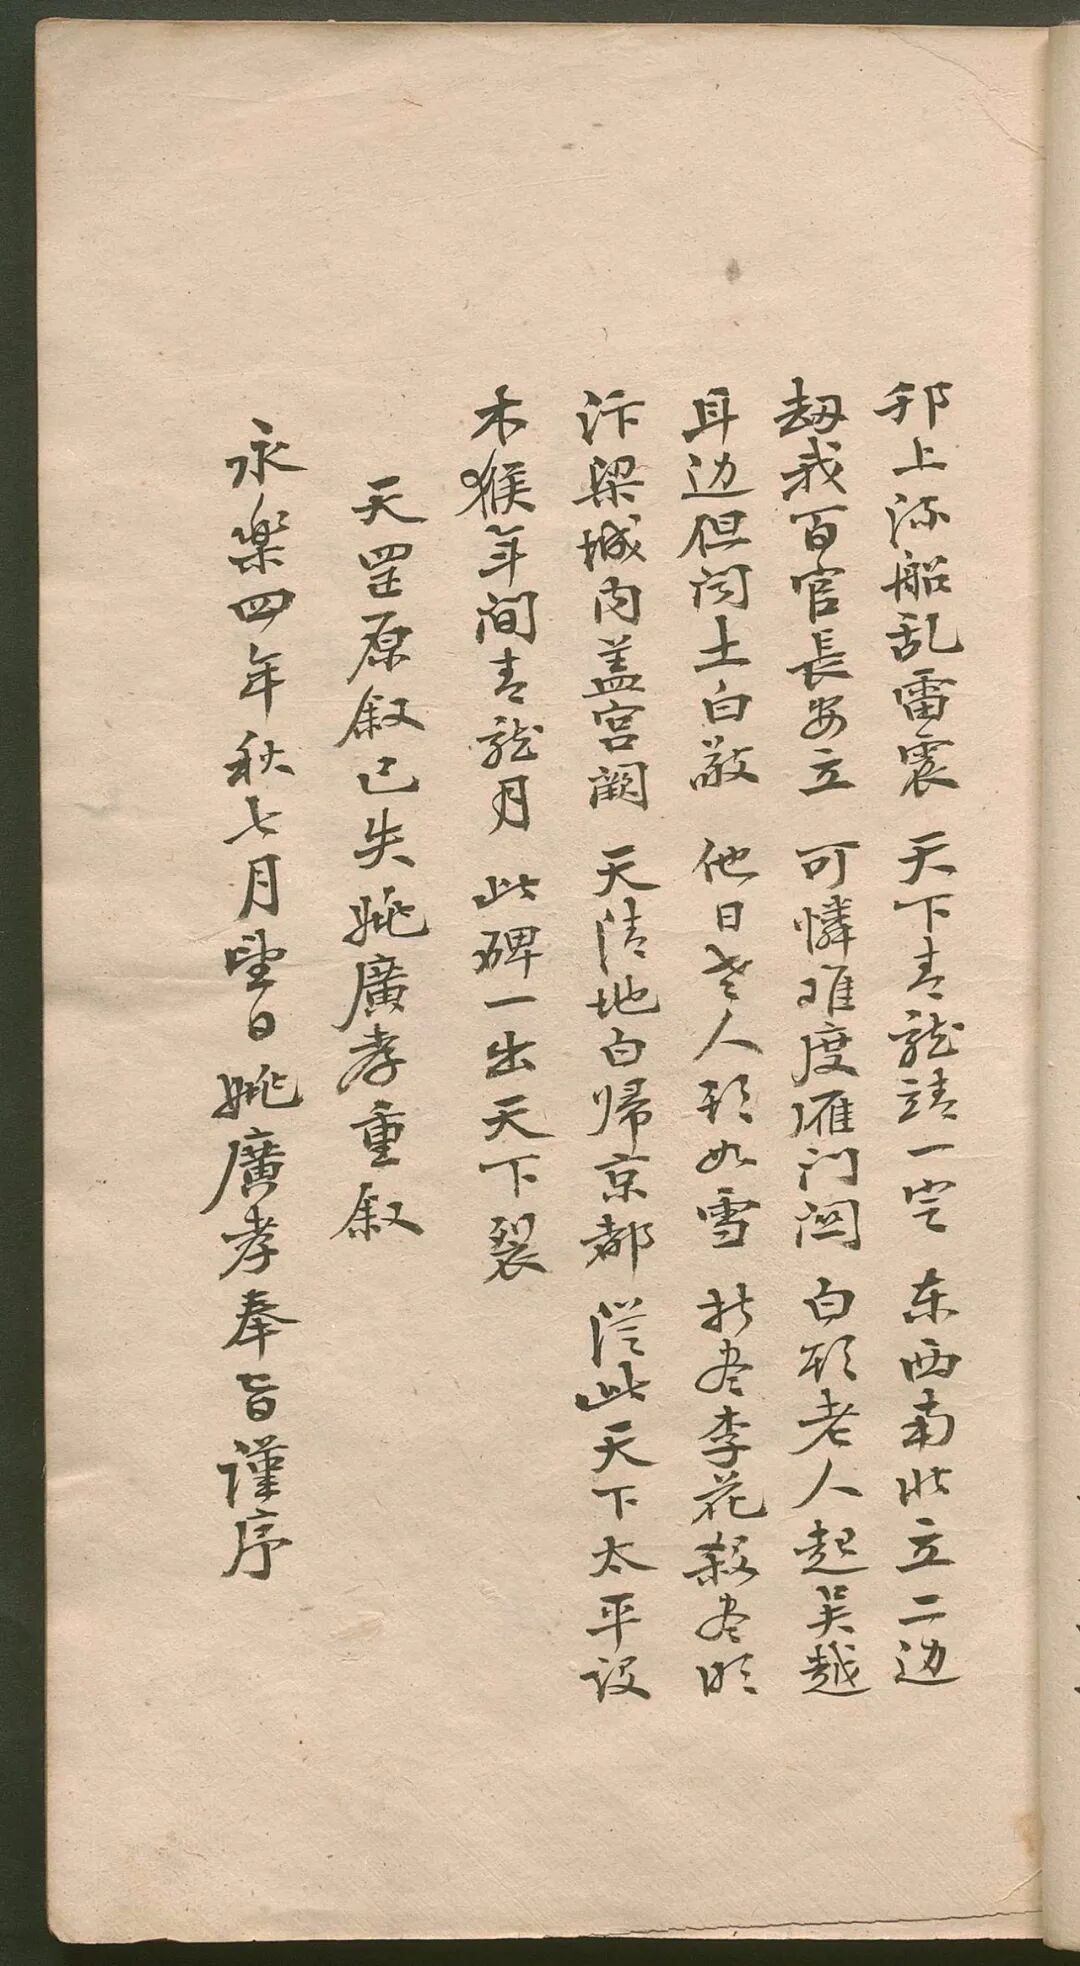 邗上流船乱雷震 天下青龍靖一空 东西南北立二边
劫我百官長安立 可憐难度雁门関 白头老人起吴越
耳边但闻土白敲 他日老人头如雪 折尽李花殺尽
汴梁城内盖宫阙 天清地白归京都 從此天下太平设
木猴年间青龍月 此碑一出天下裂
天罡原叙已失姚廣孝重叙
永樂四年秋七月望日姚廣孝奉旨谨序